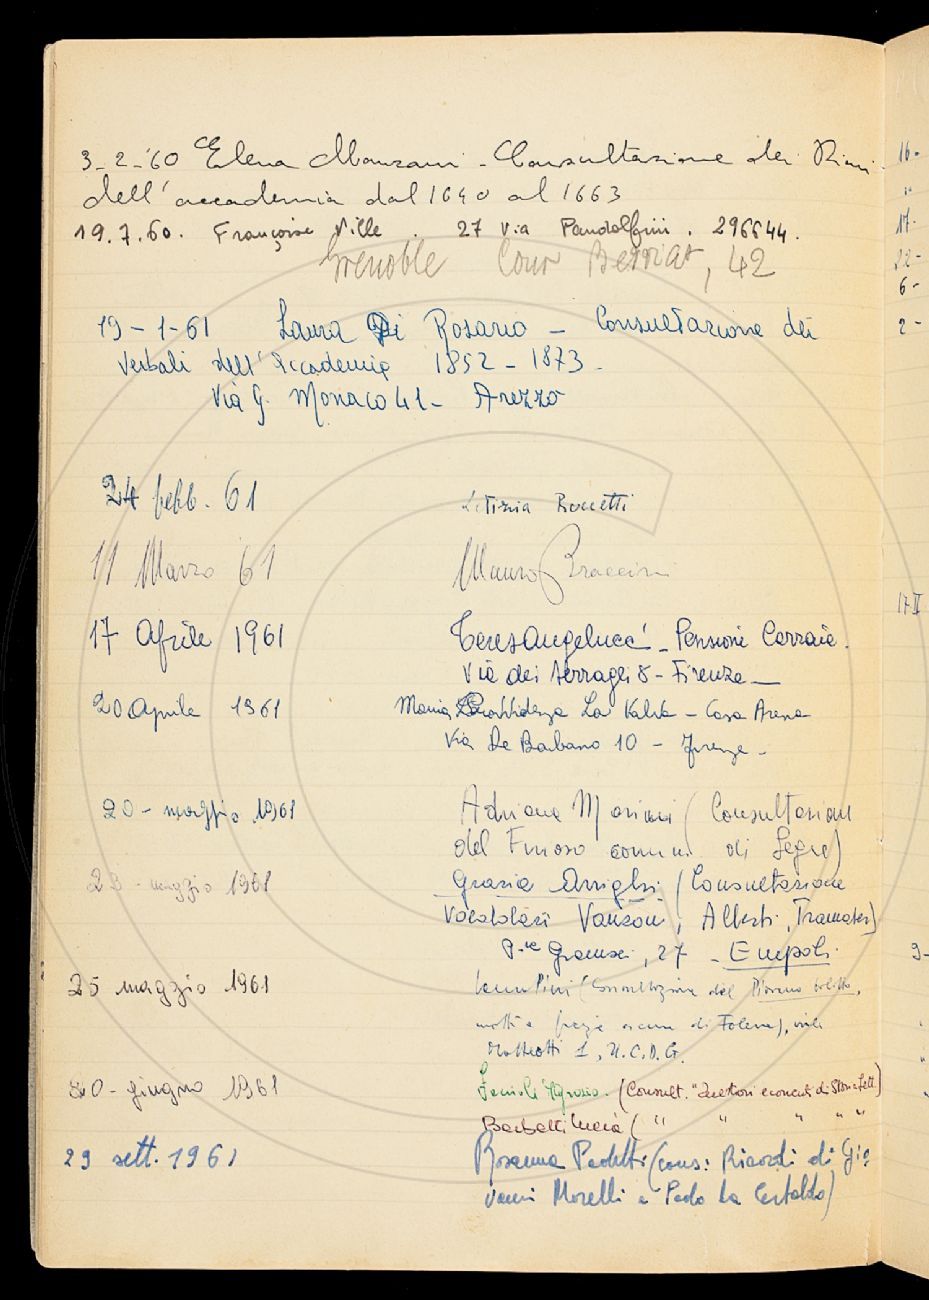 3-2-'60 Elena Manzani - Consultazione dei
dell'accademia dal 1640 al 1663
19.7.60. Françoise Ville. 27 via Pandolfini. 296644.
Grenoble Cour Berriat, 42
19-1-61 Laura Di Rosario - Consultazione dei
Verbali dell'Accademia 1852-1873-
Via G. Monaco 41- Arezzo
24 febb. 61 Letizia
11 Marzo 61 Mauro Braccini
17 Aprile 1961 Pensione Carraia.
Via dei Serragli 8- Firenze-
20 Aprile 1961 Maria La - Casa Arena
Via De Barbano 10 - Firenze-
20-maggio 1961 Adriana (Consultazione
del Furioso di Segre)
maggio 1961 Grazia Arrighi (Consultazione
Vocabolari Vanzon, Alberti, Tramater)
Gramsci, 27 - Empoli
25 maggio 1961 Pini (Consultazione del
di Folena), viale
Matteotti 1,
giugno 1961 (Consult. "Questioni di Storia Lett.)
(" " " " "
29 sett. 1961 Rosanna (cons: Ricordi di Gio
vanni Morelli e Paolo da Certaldo)
16-
"
17-
22-
6-
2-
17 II
9-